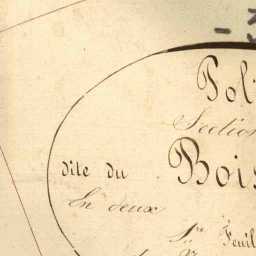 Pol
Section
dite du Bois
En deux
1re Feuil